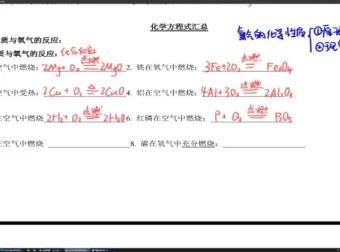 化学方程式汇总
氧气的化学性质 ①
②现
质与氧气的反应:
质与氧气的反应: 化合反应
空气中燃烧: 2Mg + O₂ 点燃 2MgO 2. 铁在氧气中燃烧: 3Fe+2O₂ 点燃 Fe₃O₄
空气中受热: 2Cu + O₂ △ 2CuO 4. 铝在空气中燃烧: 4Al+3O₂ 点燃 2Al₂O₃
空气中燃烧 2H₂+O₂ 点燃 2H₂O 6. 红磷在空气中燃烧: P + O₂ 点燃 P₂O₅
在空气中燃烧 8. 碳在氧气中充分燃烧: